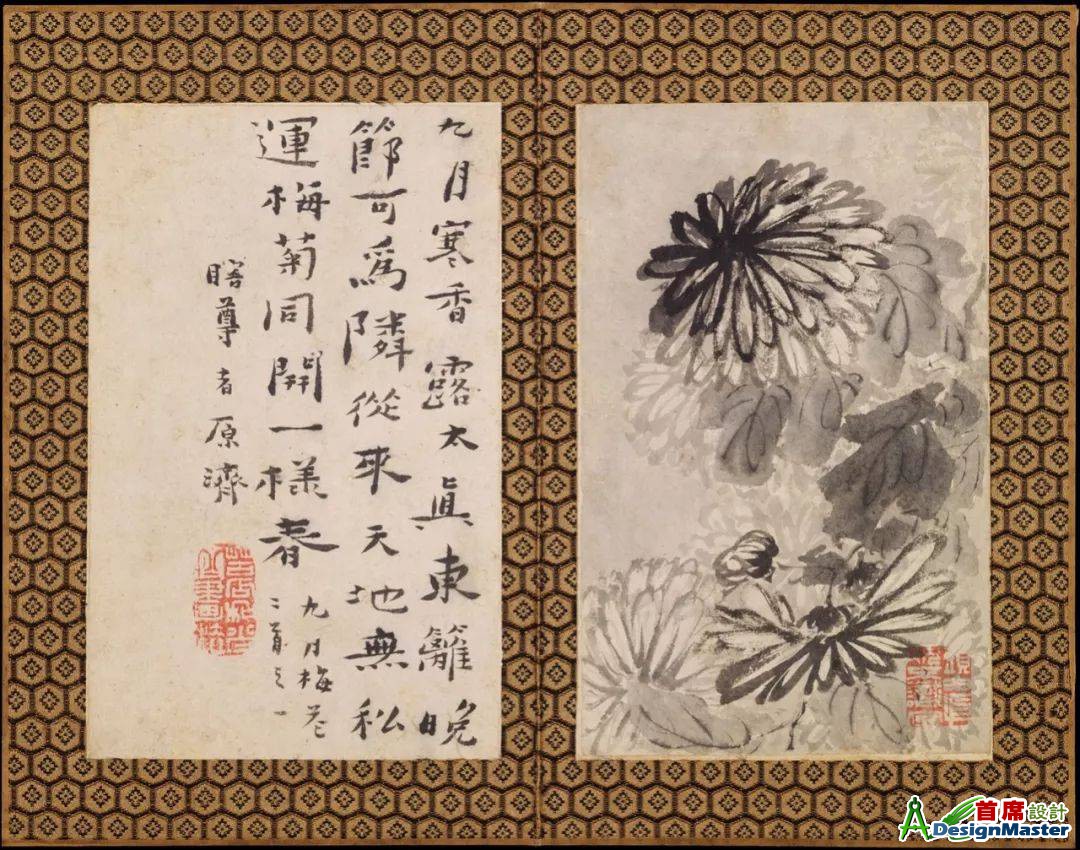 九月寒香露太真東籬晚
節可爲隣從來天地無私
運梅菊同開一樣春
九月梅花
二首之一
瞎尊者原濟
首席設計
ADesignMaster